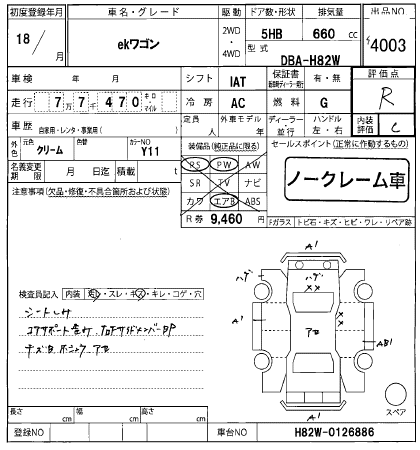 初度登録年月
車名・グレード
駆動
ドア数・形状
排気量
出品NO
18/ 月
ekワゴン
2WD・4WD
5HB
660 cc
4003
型式
DBA-H82W
車検 年 月
シフト
IAT
保証書
有・無
評価点
走行 7万7千470 キロ・マイル
冷房
AC
燃料
G
R
車歴 自家用・レンタ・事業用( )
定員 人
外車モデル 年
ディーラー・並行
ハンドル 左・右
内装評価
C
外色
元色
クリーム
色替
カラーNO
Y11
装備品(純正品に限る)
セールスポイント(正常に作動するもの)
名義変更期限
月 日迄
積載 t
PS PW AW
ノークレーム車
注意事項(欠品・修復・不具合箇所および状態)
SR TV ナビ
カワ エアB ABS
R券 9,460 円
Fガラス
トビ石・キズ・ヒビ・ワレ・リペア跡
A1
ハゲ
ハゲ
××
A1
××
アセ
AB1
A1
スペア
検査員記入
内装
・スレ・キズ・キレ・コゲ・穴
コアサポート
キズ凹 ボンネット アセ
長さ cm
幅 cm
高さ cm
登録NO
車台NO
H82W-0126886